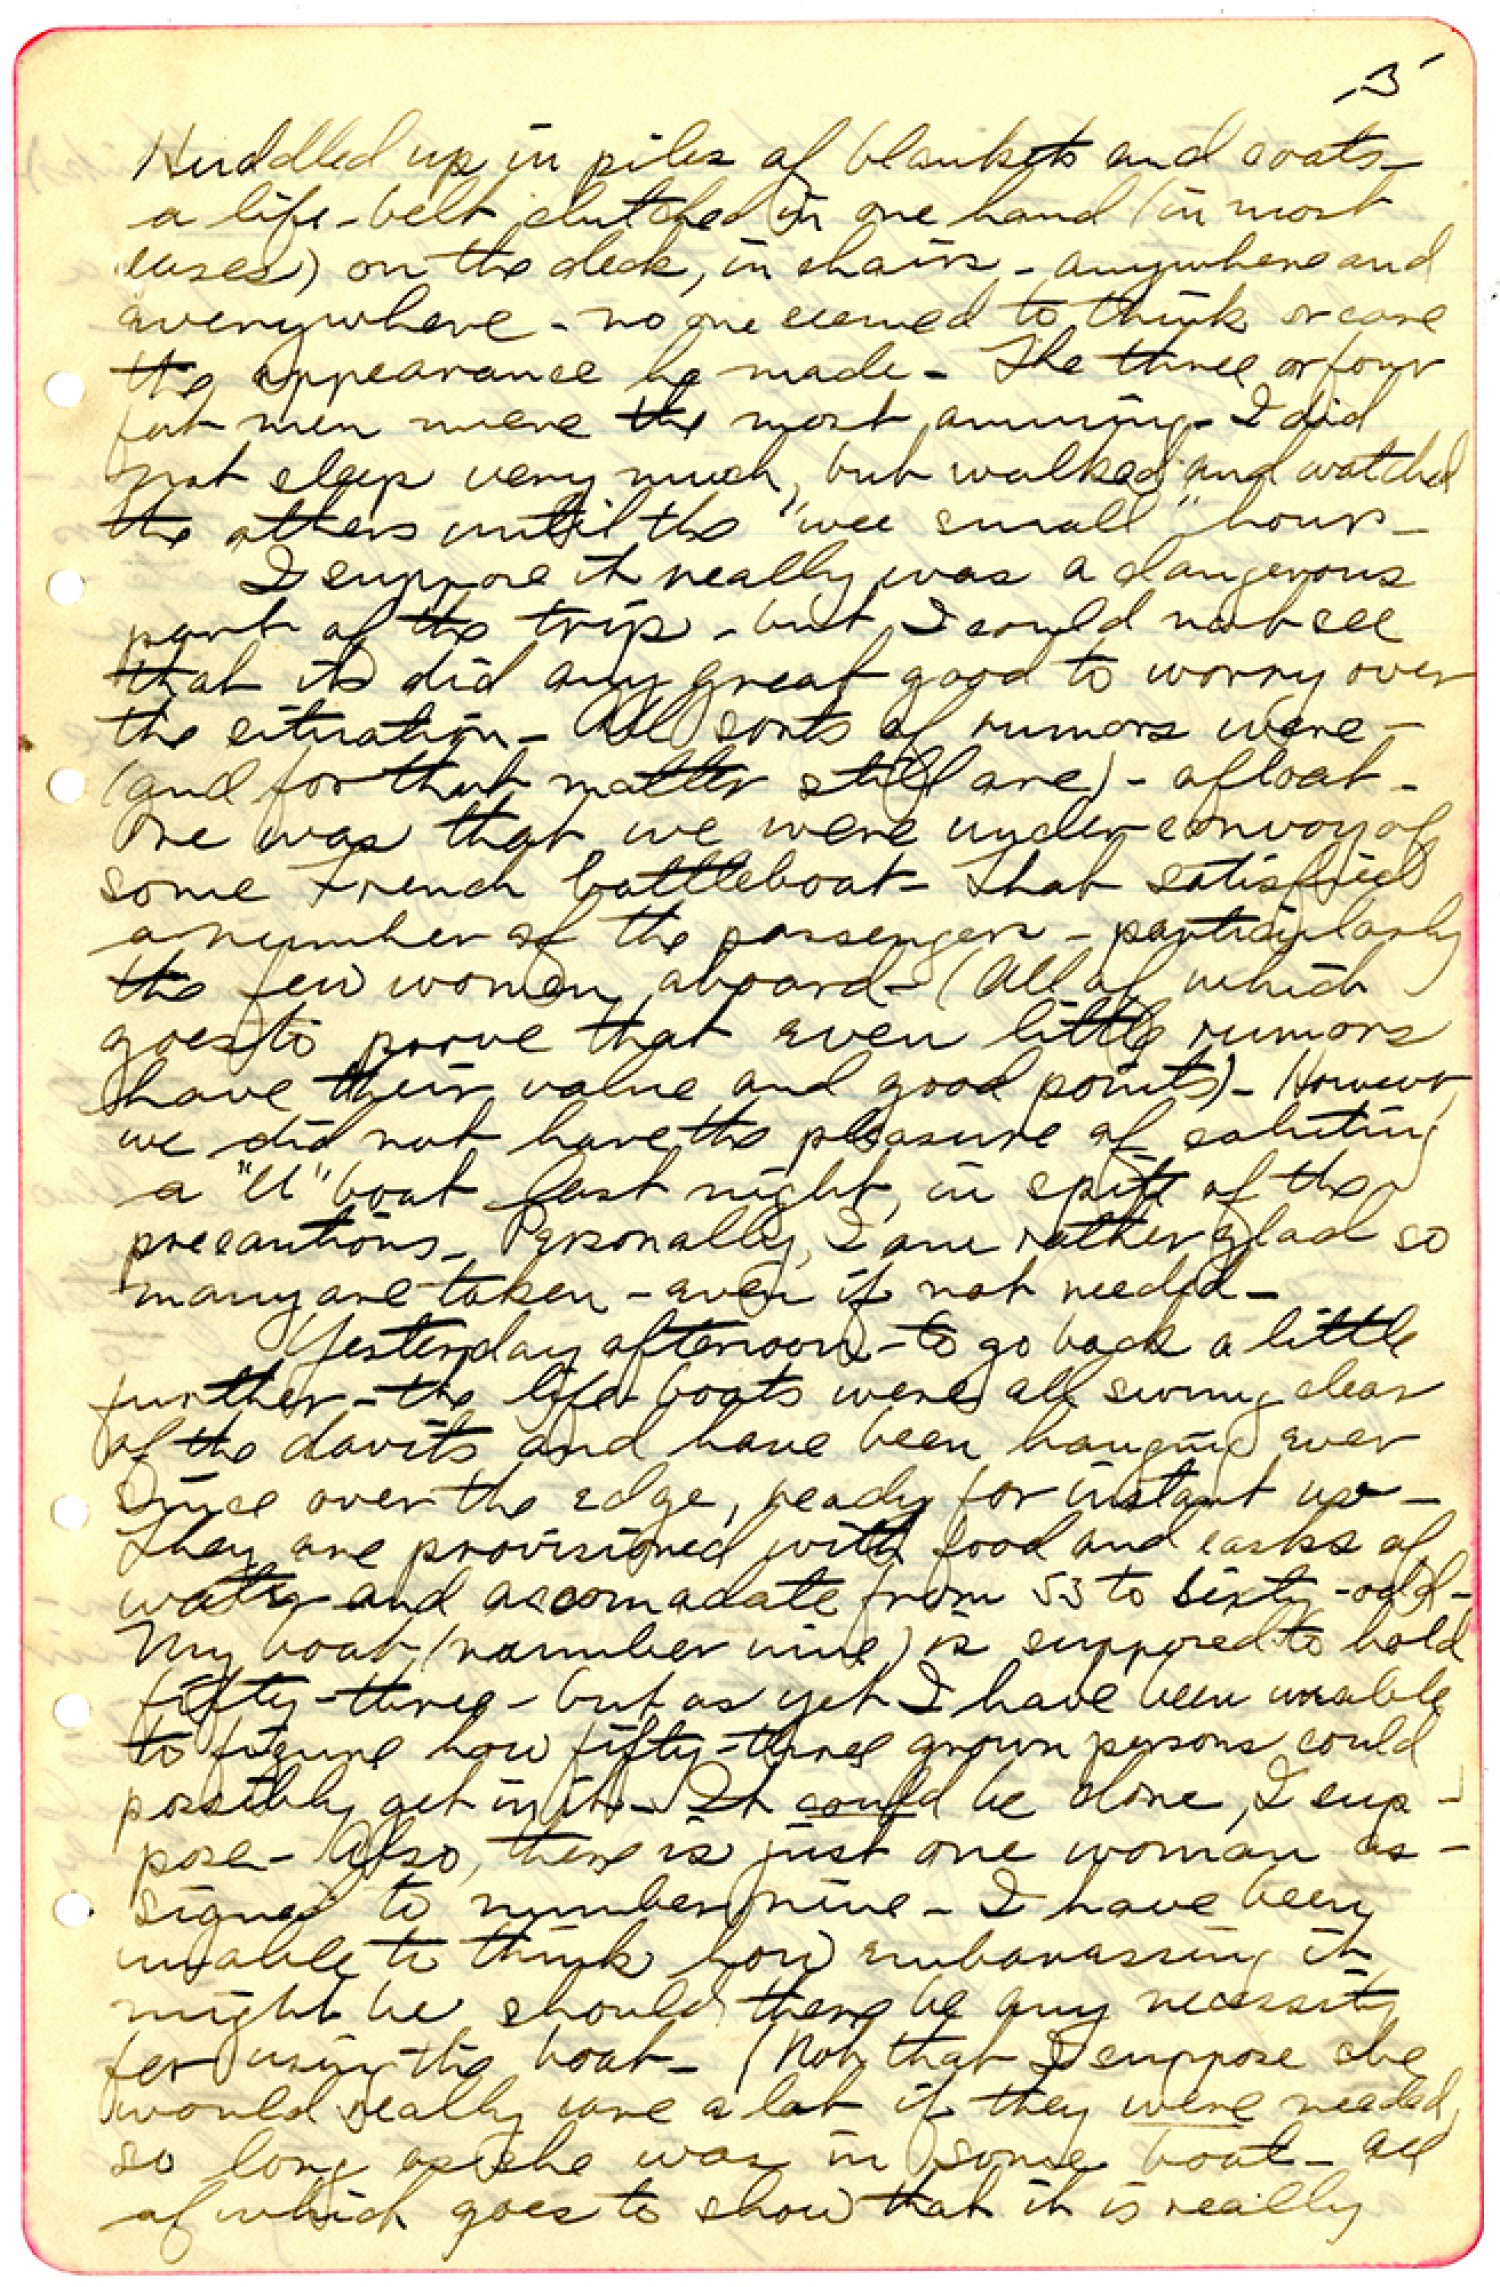 -3-
Huddled up in piles of blankets and coats -
a life-belt clutched in one hand (in most
cases) on the deck, in chairs - anywhere and
everywhere - no one seemed to think or care
the appearance he made - The three or four
fat men were the most amusing - I did
not sleep very much, but walked and watched
the others until the "wee small" hours -
I suppose it really was a dangerous
part of the trip - but I could not see
that it did any great good to worry over
the situation - All sorts of rumors were -
(and for that matter still are) - afloat -
One was that we were under convoy of
some French battleboat - That satisfied
a number of the passengers - particularly
the few women aboard - (All of which
goes to prove that even little rumors
have their value and good points) - However,
we did not have the pleasure of saluting
a "U" boat last night, in spite of the
precautions - Personally, I am rather glad so
many are taken - even if not needed -
Yesterday afternoon - to go back a little
further - the life boats were all swung clear
of the davits and have been hanging ever
since over the edge, ready for instant use -
They are provisioned with food and casks of
water and accomadate from 53 to sixty-odd -
My boat (number nine) is supposed to hold
fifty-three - but as yet I have been unable
to figure how fifty-three grown persons could
possibly get in it - It could be done, I sup-
pose - Also, there is just one woman as-
signed to number nine - I have been
unable to think how embarassing it
might be should there be any necessity
for using the boat - (Not that I suppose she
would really care a lot if they were needed,
so long as she was in some boat - All
of which goes to show that it is really